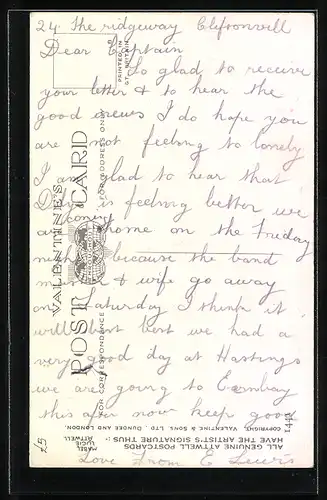 24 The ridgeway Cliftonvill
Dear Captain
So glad to receive
your letter & to hear the
good news I do hope you
are not feeling to lonely
I am glad to hear that
is feeling better we
are coming home on the Friday
night because the band
& wife go away
on Saturday I think it
will best we had a
very good day at Hastings
we are going to
this after now keep good
Love From E Lewis
£5
VALENTINE'S
POST CARD
FOR CORRESPONDENCE
FOR ADDRESS ONLY
PRINTED IN
GT BRITAIN
ALL GENUINE ATTWELL POSTCARDS
HAVE THE ARTIST'S SIGNATURE THUS :-
MABEL
LUCIE
ATTWELL
COPYRIGHT. VALENTINE & SONS, LTD. DUNDEE AND LONDON.